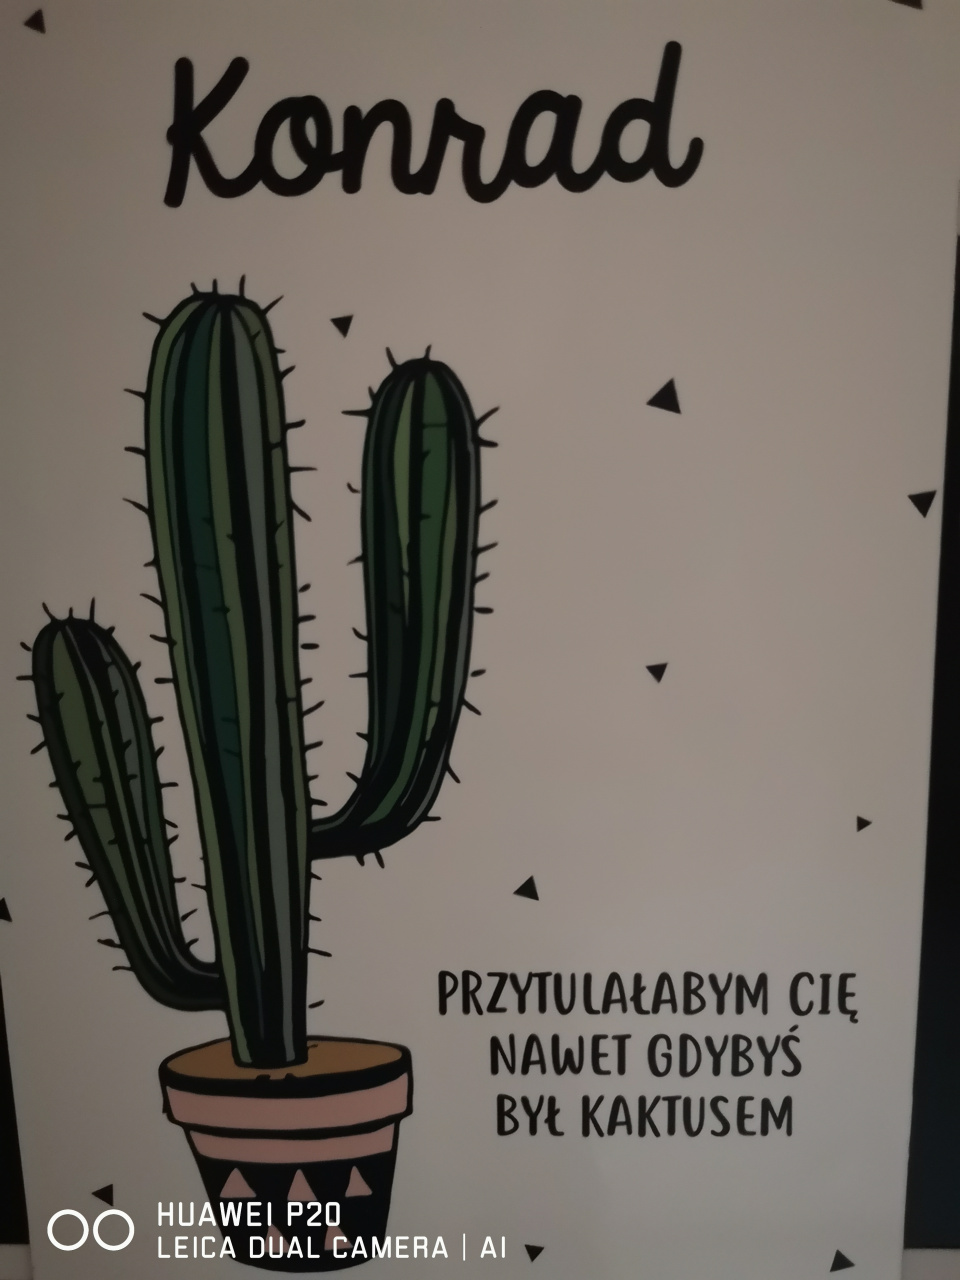 Konrad
PRZYTULAŁABYM CIĘ
NAWET GDYBYŚ
BYŁ KAKTUSEM
HUAWEI P20
LEICA DUAL CAMERA | AI